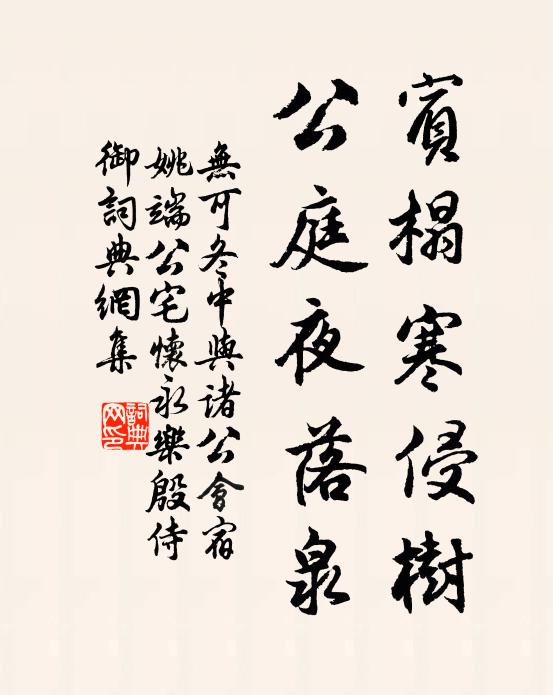 賓榻寒侵樹
公庭夜落泉
無可冬中與諸公會宿
姚端公宅懷永樂殷侍
御詞典網集
詞典
网印